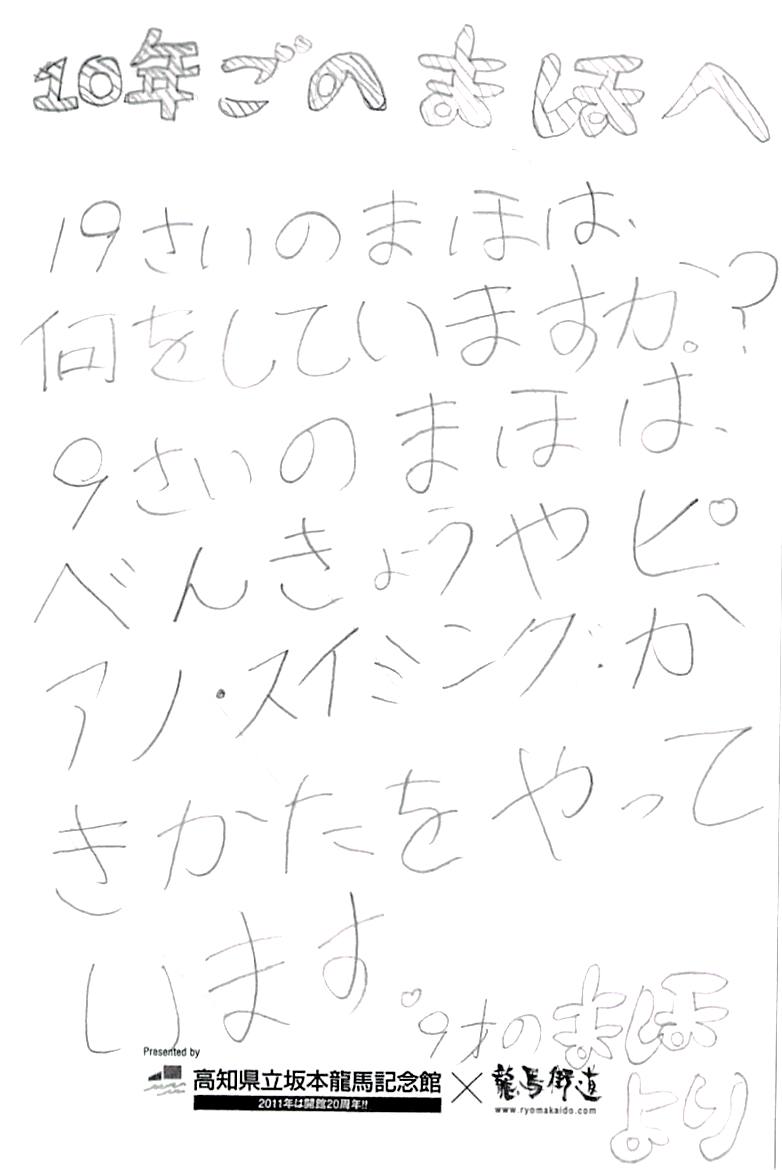 10年ごのまほへ
19さいのまほは、
何をしていますか。?
9さいのまほは、
べんきょうやピ
アノ・スイミング・か
きかたをやって
います。
9才のまほ
より
Presented by
高知県立坂本龍馬記念館×龍馬街道
2011年は開館20周年!!
www.ryomakaido.com